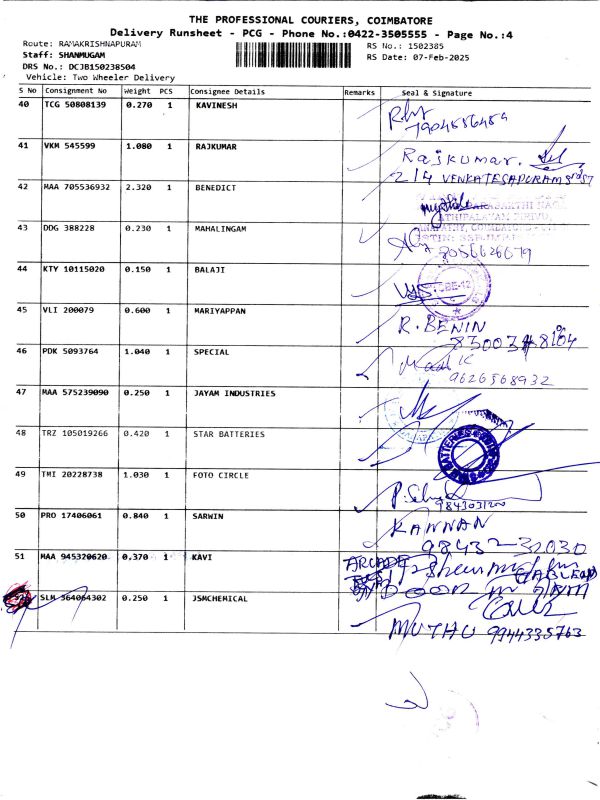 THE PROFESSIONAL COURIERS, COIMBATORE
Delivery Runsheet - PCG - Phone No.:0422-3505555 - Page No.:4
Route: RAMAKRISHNAPURAM
RS No.: 1502385
Staff: SHANMUGAM
RS Date: 07-Feb-2025
DRS No.: DCJB150238504
Vehicle: Two Wheeler Delivery
S No Consignment No Weight PCS Consignee Details Remarks Seal & Signature
40 TCG 50808139 0.270 1 KAVINESH
7904556459
41 VKM 545599 1.080 1 RAJKUMAR
Rajkumar.
214 VENKATESAPURAM
42 MAA 705536932 2.320 1 BENEDICT
43 DDG 388228 0.230 1 MAHALINGAM
8056626679
44 KTY 10115020 0.150 1 BALAJI
45 VLI 200079 0.600 1 MARIYAPPAN
R. BENIN
46 PDK 5093764 1.040 1 SPECIAL
9626568932
47 MAA 575239090 0.250 1 JAYAM INDUSTRIES
48 TRZ 105019266 0.420 1 STAR BATTERIES
49 TMI 20228738 1.030 1 FOTO CIRCLE
9843031200
50 PRO 17406061 0.840 1 SARWIN
KANNAN
98432-32030
51 MAA 945320620 0.370 1 KAVI
ARCADE
DOOR
52 SLM 364064302 0.250 1 JSMCHEMICAL
MUTHU 9944335763